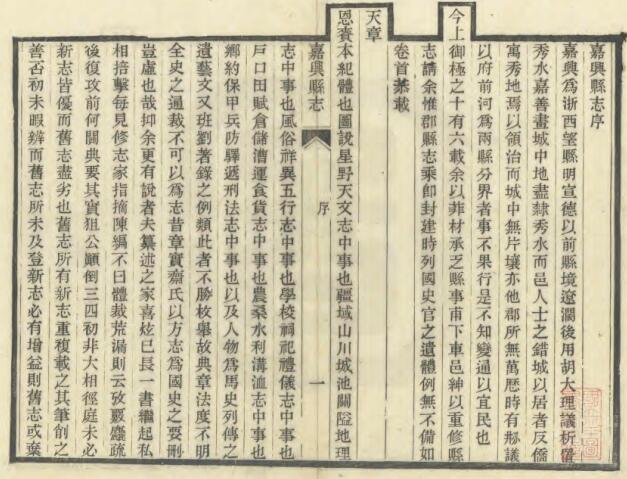 嘉興縣志序
嘉興爲浙西望縣明宣德以前縣境遼濶後用胡大理議析置
秀水嘉善畫城中地盡隸秀水而邑人士之錯城以居者反僑
寓秀地焉以領治而城中無片壤亦他郡所無萬厯時有郟議
以府前河爲兩縣分界者事不果行是不知變通以宜民也
今上御極之十有六載余以菲材承乏縣事甫下車邑紳以重修縣
志請余惟郡縣志乘卽封建時列國史官之遺體例無不備如
卷首恭載
天章
恩賚本紀體也圖說星野天文志中事也疆域山川城池關隘地理
嘉興縣志
序
一
志中事也風俗祥異五行志中事也學校祠祀禮儀志中事也
戸口田賦倉儲漕運食貨志中事也農桑水利溝洫志中事也
鄉約保甲兵防驛遞刑法志中事也以及人物爲馬史列傳之
遺藝文又班劉著錄之例類此者不勝枚舉故典章法度不明
全史之通裁不可以爲志昔章實齋氏以方志爲國史之要刪
豈虛也哉抑余更有說者夫纂述之家喜炫已長一書繼起私
相掊擊每見修志家指摘陳編不曰體裁荒漏則云攷覈麤疏
後復攻前何關典要其實狙公顚倒三四初非大相徑庭未必
新志皆優而舊志盡劣也舊志所有新志重複載之其筆削之
善否初未暇辨而舊志所未及登新志必有增益則舊志或棄